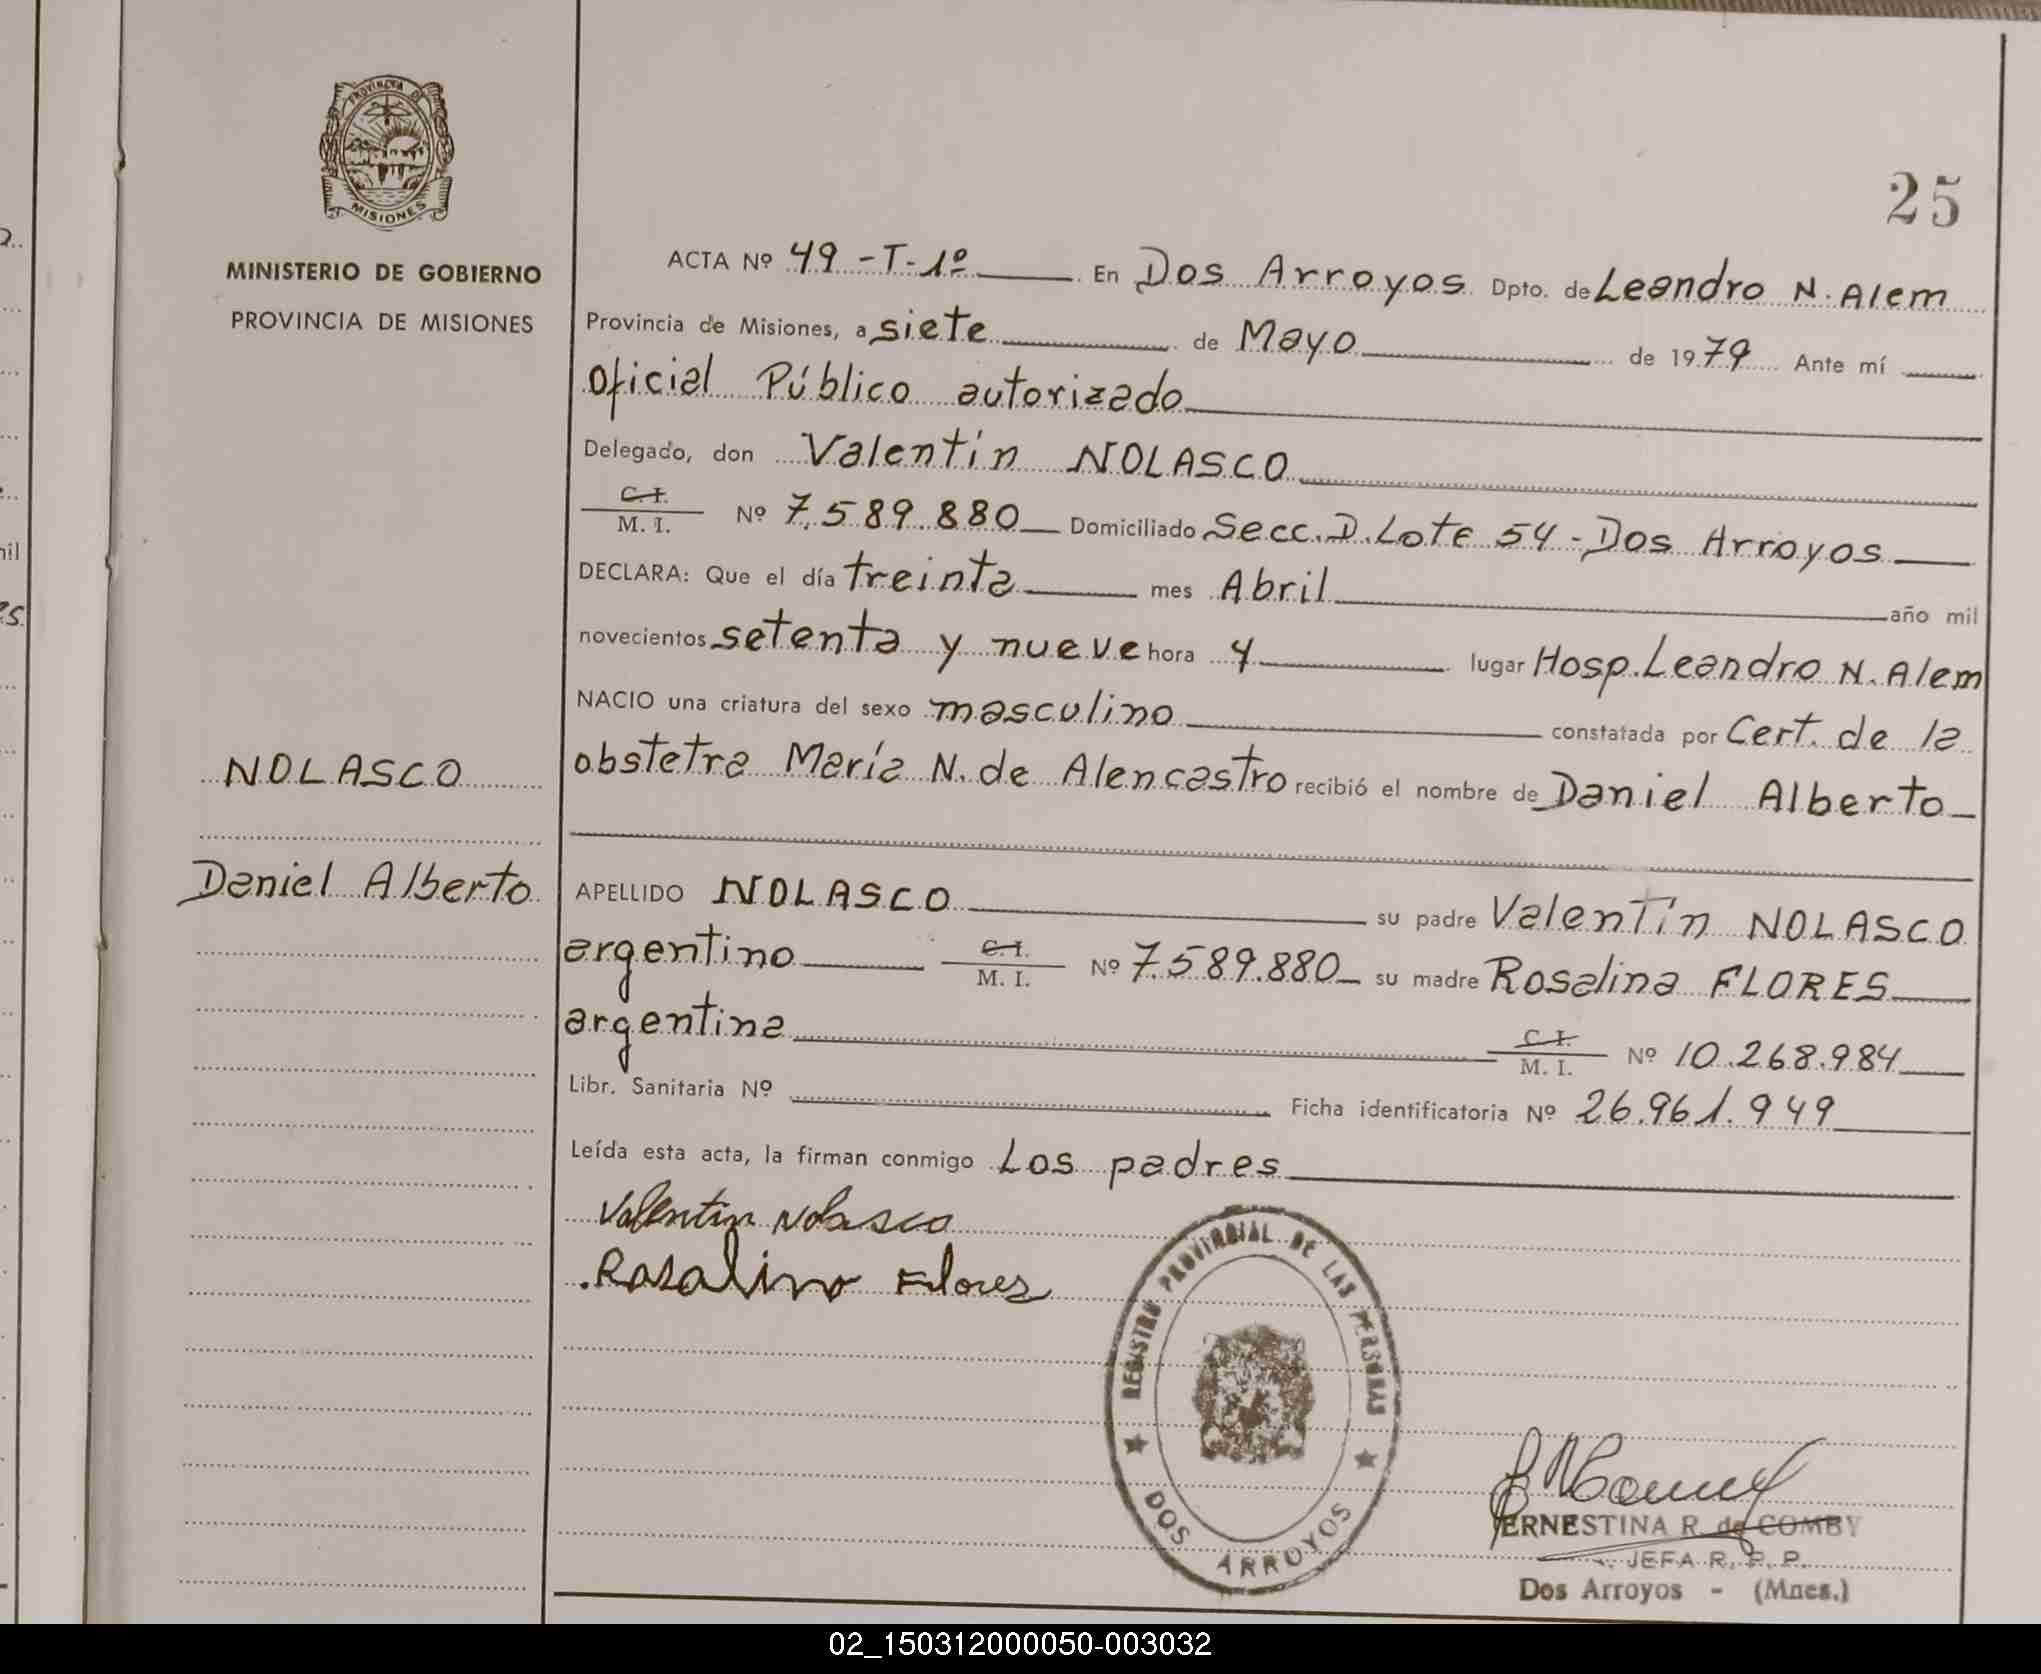 PROVINCIA DE
MISIONES
MINISTERIO DE GOBIERNO
PROVINCIA DE MISIONES
NOLASCO
Daniel Alberto
25
ACTA Nº 49-T-1º En Dos Arroyos Dpto. de Leandro N. Alem
Provincia de Misiones, a siete de Mayo de 1979 Ante mí
oficial Público autorizado
Delegado, don Valentín NOLASCO
C. I.
M. I. Nº 7.589.880 Domiciliado Secc. D. Lote 54 - Dos Arroyos
DECLARA: Que el día treinta mes Abril año mil
novecientos setenta y nueve hora 4 lugar Hosp. Leandro N. Alem
NACIO una criatura del sexo masculino constatada por Cert. de la
obstetra María N. de Alencastro recibió el nombre de Daniel Alberto
APELLIDO NOLASCO su padre Valentín NOLASCO
argentino C. I. M. I. Nº 7.589.880 su madre Rosalina FLORES
argentina C. I. M. I. Nº 10.268.984
Libr. Sanitaria Nº Ficha identificatoria Nº 26.961.949
Leída esta acta, la firman conmigo Los padres
Valentin Nolasco
Rosalino Flores
REGISTRO PROVINCIAL DE LAS PERSONAS
DOS ARROYOS
ERNESTINA R. de COMBY
JEFA R. P. P.
Dos Arroyos - (Mnes.)
02_150312000050-003032